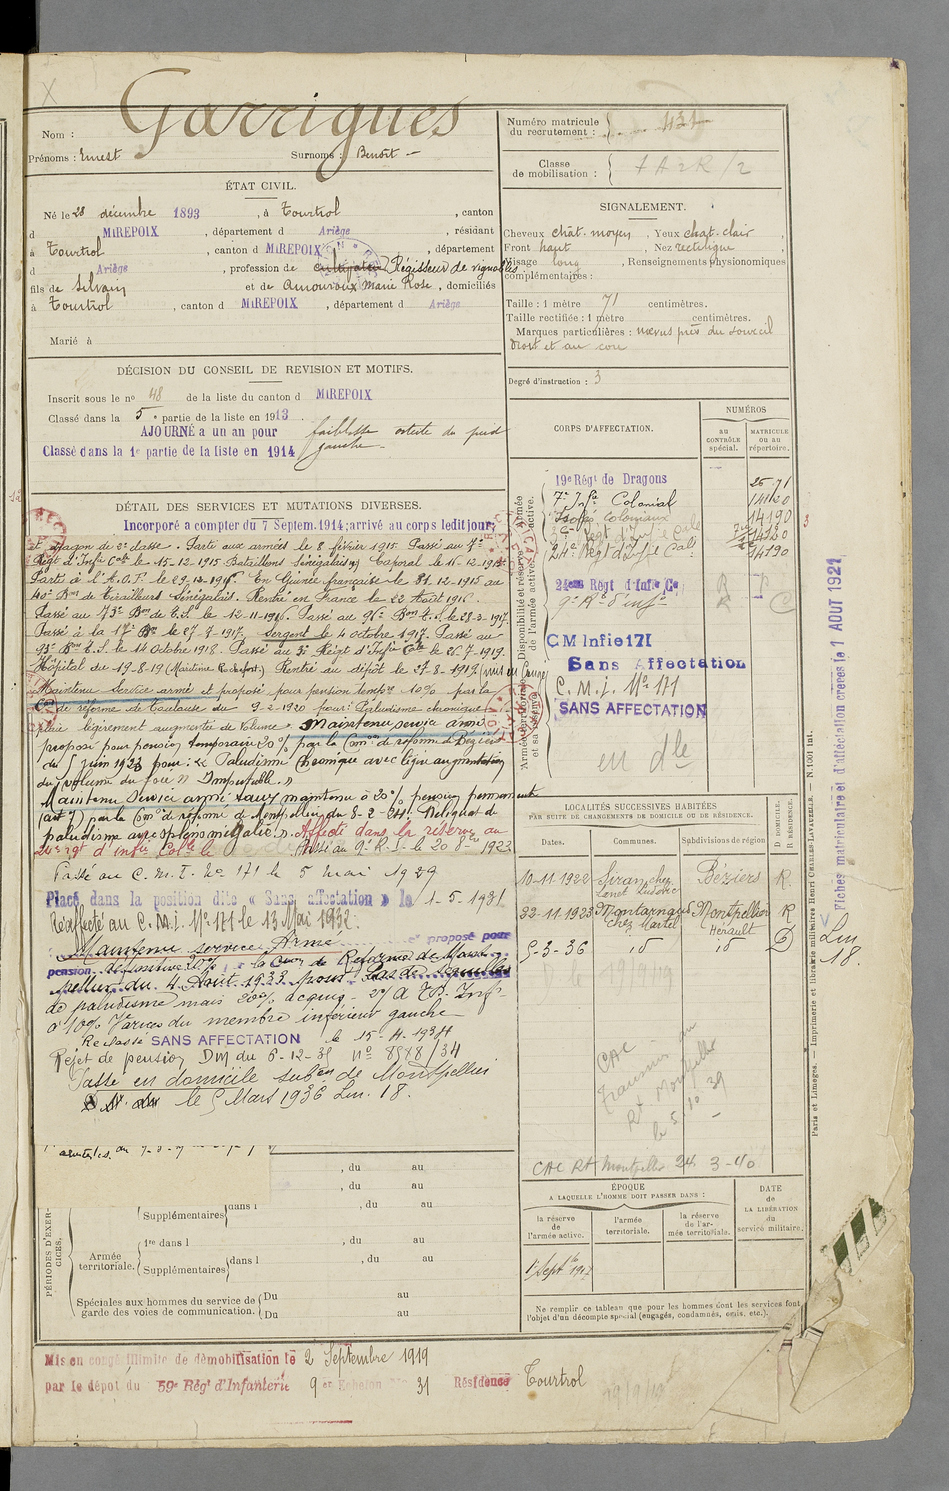 Garrigues
Nom :
Prénoms : Ernest Surnoms : Benoît
ÉTAT CIVIL.
Né le 28 décembre 1893, à Tourtrol, canton
d MIREPOIX, département d Ariège, résidant
à Tourtrol, canton d MIREPOIX, département
d Ariège, profession de cultivateur Régisseur de vignobles
fils de Silvain et de Amouroux Marie Rose, domiciliés
à Tourtrol, canton d MIREPOIX, département d Ariège
Marié à
DÉCISION DU CONSEIL DE REVISION ET MOTIFS.
Inscrit sous le n° 48 de la liste du canton d MIREPOIX
Classé dans la 5e partie de la liste en 1913.
AJOURNÉ a un an pour faiblesse
Classé dans la 1e partie de la liste en 1914 gauche
DÉTAIL DES SERVICES ET MUTATIONS DIVERSES.
Incorporé a compter du 7 Septem. 1914; arrivé au corps ledit jour;
et dragon de 2e classe. Parti aux armées le 8 février 1915. Passé au 7e
Régt d'Infie Cale le 15-12-1915 Bataillons Sénégalais Caporal le 16-12-1915
Parti à l'A.O.F. le 29-12-1915. En Guinée française le 31.12.1915 au
40e Bon de Tirailleurs Sénégalais. Rentré en France le 22 Août 1916.
Passé au 73e Bon de T.S. le 12-11-1916. Passé au 96e Bon T.S. le 28-3-1917.
Passé à la 17e le 27-9-1917. Sergent le 4 octobre 1917. Passé au
93e Bon T.S. le 14 octobre 1918. Passé au 3e Régt d'Infie Cale le 26-7-1919.
Hôpital du 19-8-19 (Maritime Rochefort) Rentré au dépôt le 27-8-1919 (mis en Congé)
Maintenu service armé et proposé pour pension tempre 10% par la
Con de réforme de Toulouse du 9-2-1920 pour : Paludisme chronique
légèrement augmentée de volume. Maintenu service armé
proposé pour pension temporaire 20% par la Comon de réforme de Béziers
du 5 juin 1923 pour : "Paludisme Chronique avec légère augmentation
du volume du foie" Imputable."
Maintenu Service armé taux maintenu à 20% pension permanente
par la Comon de réforme de Montpellier du 8-2-24. Reliquat de
paludisme avec splénomégalie". Affecté dans la réserve au
24e rgt d'infie Cole le Passé au 9e R.I. le 20 1923
Passé au C.M.I. No 171 le 5 mai 1929
Placé dans la position dite « Sans affectation » le 1-5-1931
Réaffecté au C.M.I. No 171 le 13 Mai 1932.
Maintenu service Armé et proposé pour
pension définitive 20% par la Con de Réforme de Mont-
pellier du 4 Août 1933 pour : Pas de séquelles
de paludisme mais 20% acquis
à 10% Varices du membre inférieur gauche
Reclassé SANS AFFECTATION le 15-4-1934
Rejet de pension DM du 6-12-35 No 8548/34
Passe en domicile subon de Montpellier
le 5 Mars 1936 Lm. 18.
PÉRIODES D'EXERCICES.
, du au
, du au
Supplémentaires dans l , du au
Armée territoriale.
1re dans l , du au
Supplémentaires dans l , du au
Spéciales aux hommes du service de garde des voies de communication.
Du au
Du au
Mis en congé illimité de démobilisation le 2 Septembre 1919
par le dépôt du 59e Régt d'Infanterie 9e Echelon 31 Résidence Tourtrol
Numéro matricule du recrutement : 431
Classe de mobilisation :
SIGNALEMENT.
Cheveux chât. moyen, Yeux chât-clair
Front haut, Nez rectiligne
Visage long, Renseignements physionomiques
complémentaires :
Taille : 1 mètre 71 centimètres.
Taille rectifiée : 1 mètre centimètres.
Marques particulières : nævus près du sourcil
droit et au cou
Degré d'instruction : 3
CORPS D'AFFECTATION.
NUMÉROS
au CONTRÔLE spécial.
MATRICULE ou au répertoire.
Disponibilité et réserve de l'armée active.
Armée active.
Armée territoriale et sa réserve.
19e Régt de Dragons 2571
7e Infie Colonial 14120
Isolés Coloniaux 14190
3e Régt d'Infie Cole
24e Régt d'Infie Cal 14190
24ème Régt d'Infie Ce
9e d'Infie
CM Infie 171
Sans Affectation
C.M.I. No 171
SANS AFFECTATION
en dle
LOCALITÉS SUCCESSIVES HABITÉES
PAR SUITE DE CHANGEMENTS DE DOMICILE OU DE RÉSIDENCE.
Dates. Communes. Subdivisions de région D. DOMICILE. R. RÉSIDENCE.
10-11-1922 Siran chez Béziers R.
22-11-1923 Montarnaud chez Martel Montpellier Hérault R
5-3-36 id id D
CAC
Transmis au
Rt Montpellier
le 5.10 39
CAC Rt Montpellier 24. 3-40
ÉPOQUE
A LAQUELLE L'HOMME DOIT PASSER DANS :
DATE de LA LIBÉRATION du service militaire.
la réserve de l'armée active.
l'armée territoriale.
la réserve de l'armée territoriale.
1r Septbre 1917
Ne remplir ce tableau que pour les hommes dont les services font
l'objet d'un décompte spécial (engagés, condamnés, omis, etc.).
Paris et Limoges. — Imprimerie et librairie militaires Henri CHARLES-LAVAUZELLE. — N. 1001 int.
Fiches matriculaire et d'affectation créées le 1 AOUT 1921
Lm
18.